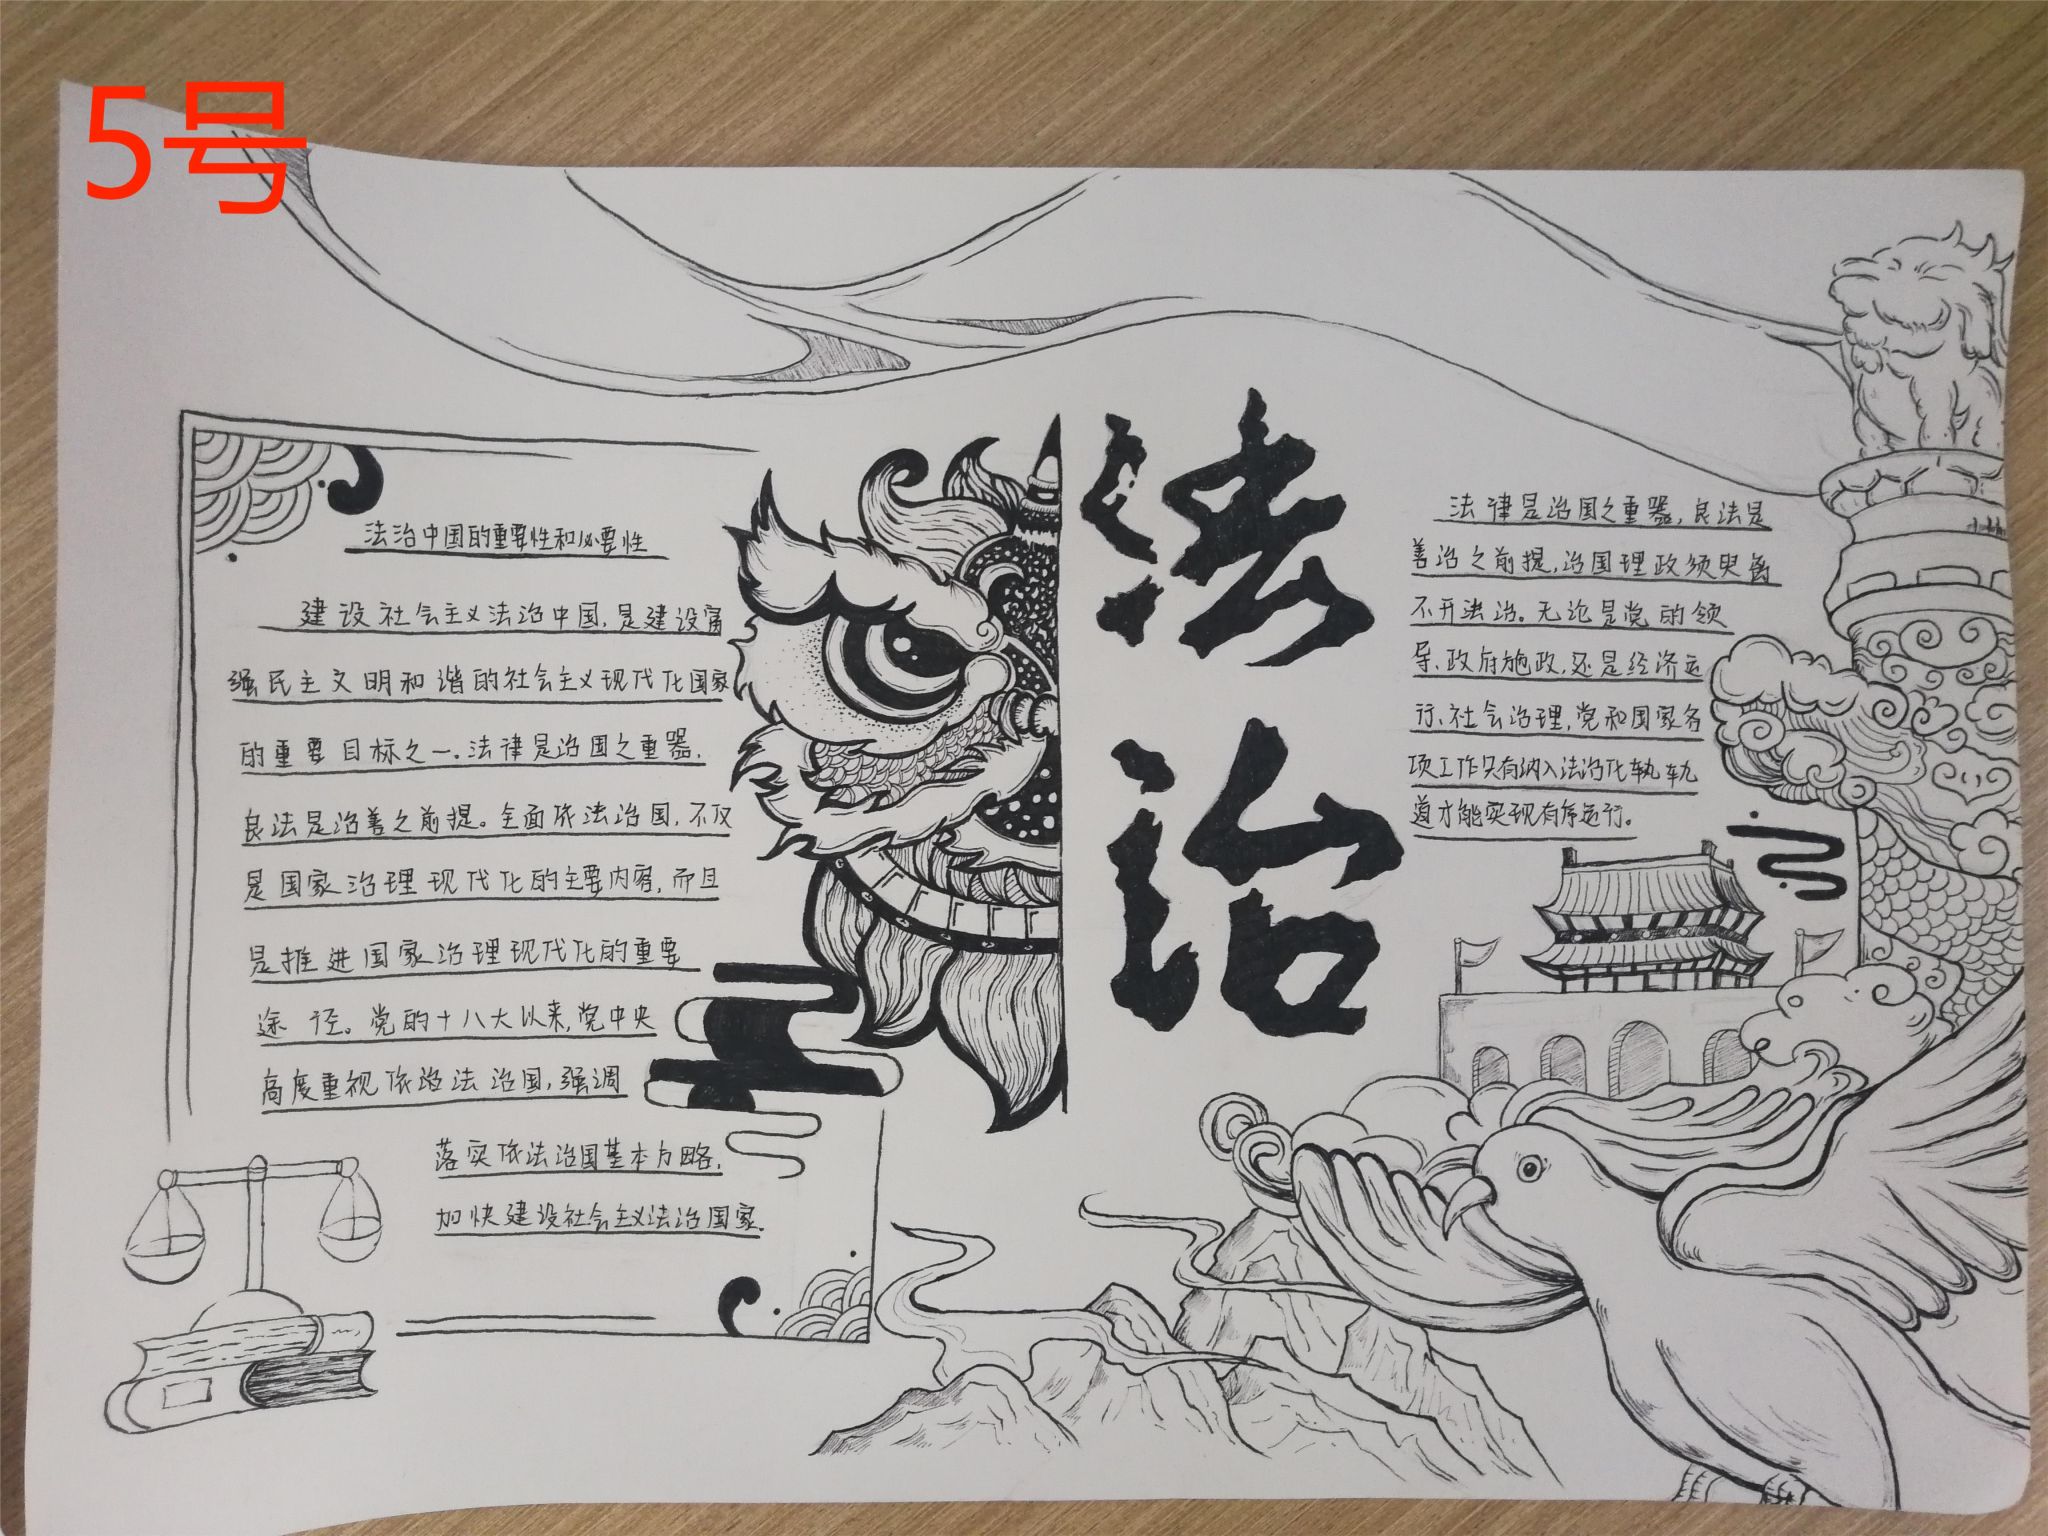 5号
法治
法治中国的重要性和必要性
建设社会主义法治中国，是建设富
强民主文明和谐的社会主义现代化国家
的重要目标之一。法律是治国之重器，
良法是治善之前提。全面依法治国，不仅
是国家治理现代化的主要内容，而且
是推进国家治理现代化的重要
途径。党的十八大以来，党中央
高度重视依治法治国，强调
落实依法治国基本方略，
加快建设社会主义法治国家。
法律是治国之重器，良法是
善治之前提，治国理政须臾离
不开法治。无论是党的领
导、政府施政，还是经济运
行、社会治理，党和国家各
项工作只有纳入法治化轨
道才能实现有序运行。